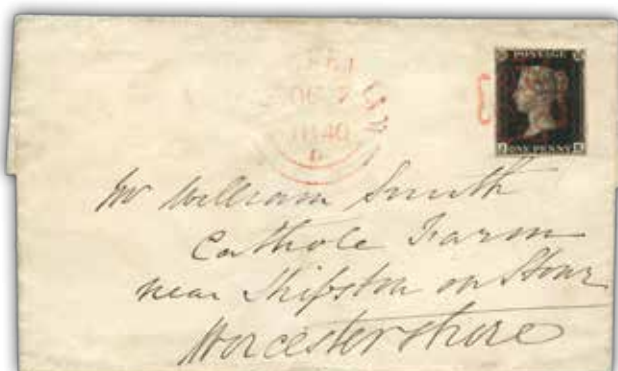 POSTAGE
ONE PENNY
1840
Mr William Smith
Cathole Farm
near Shipston on Stour
Worcestershire